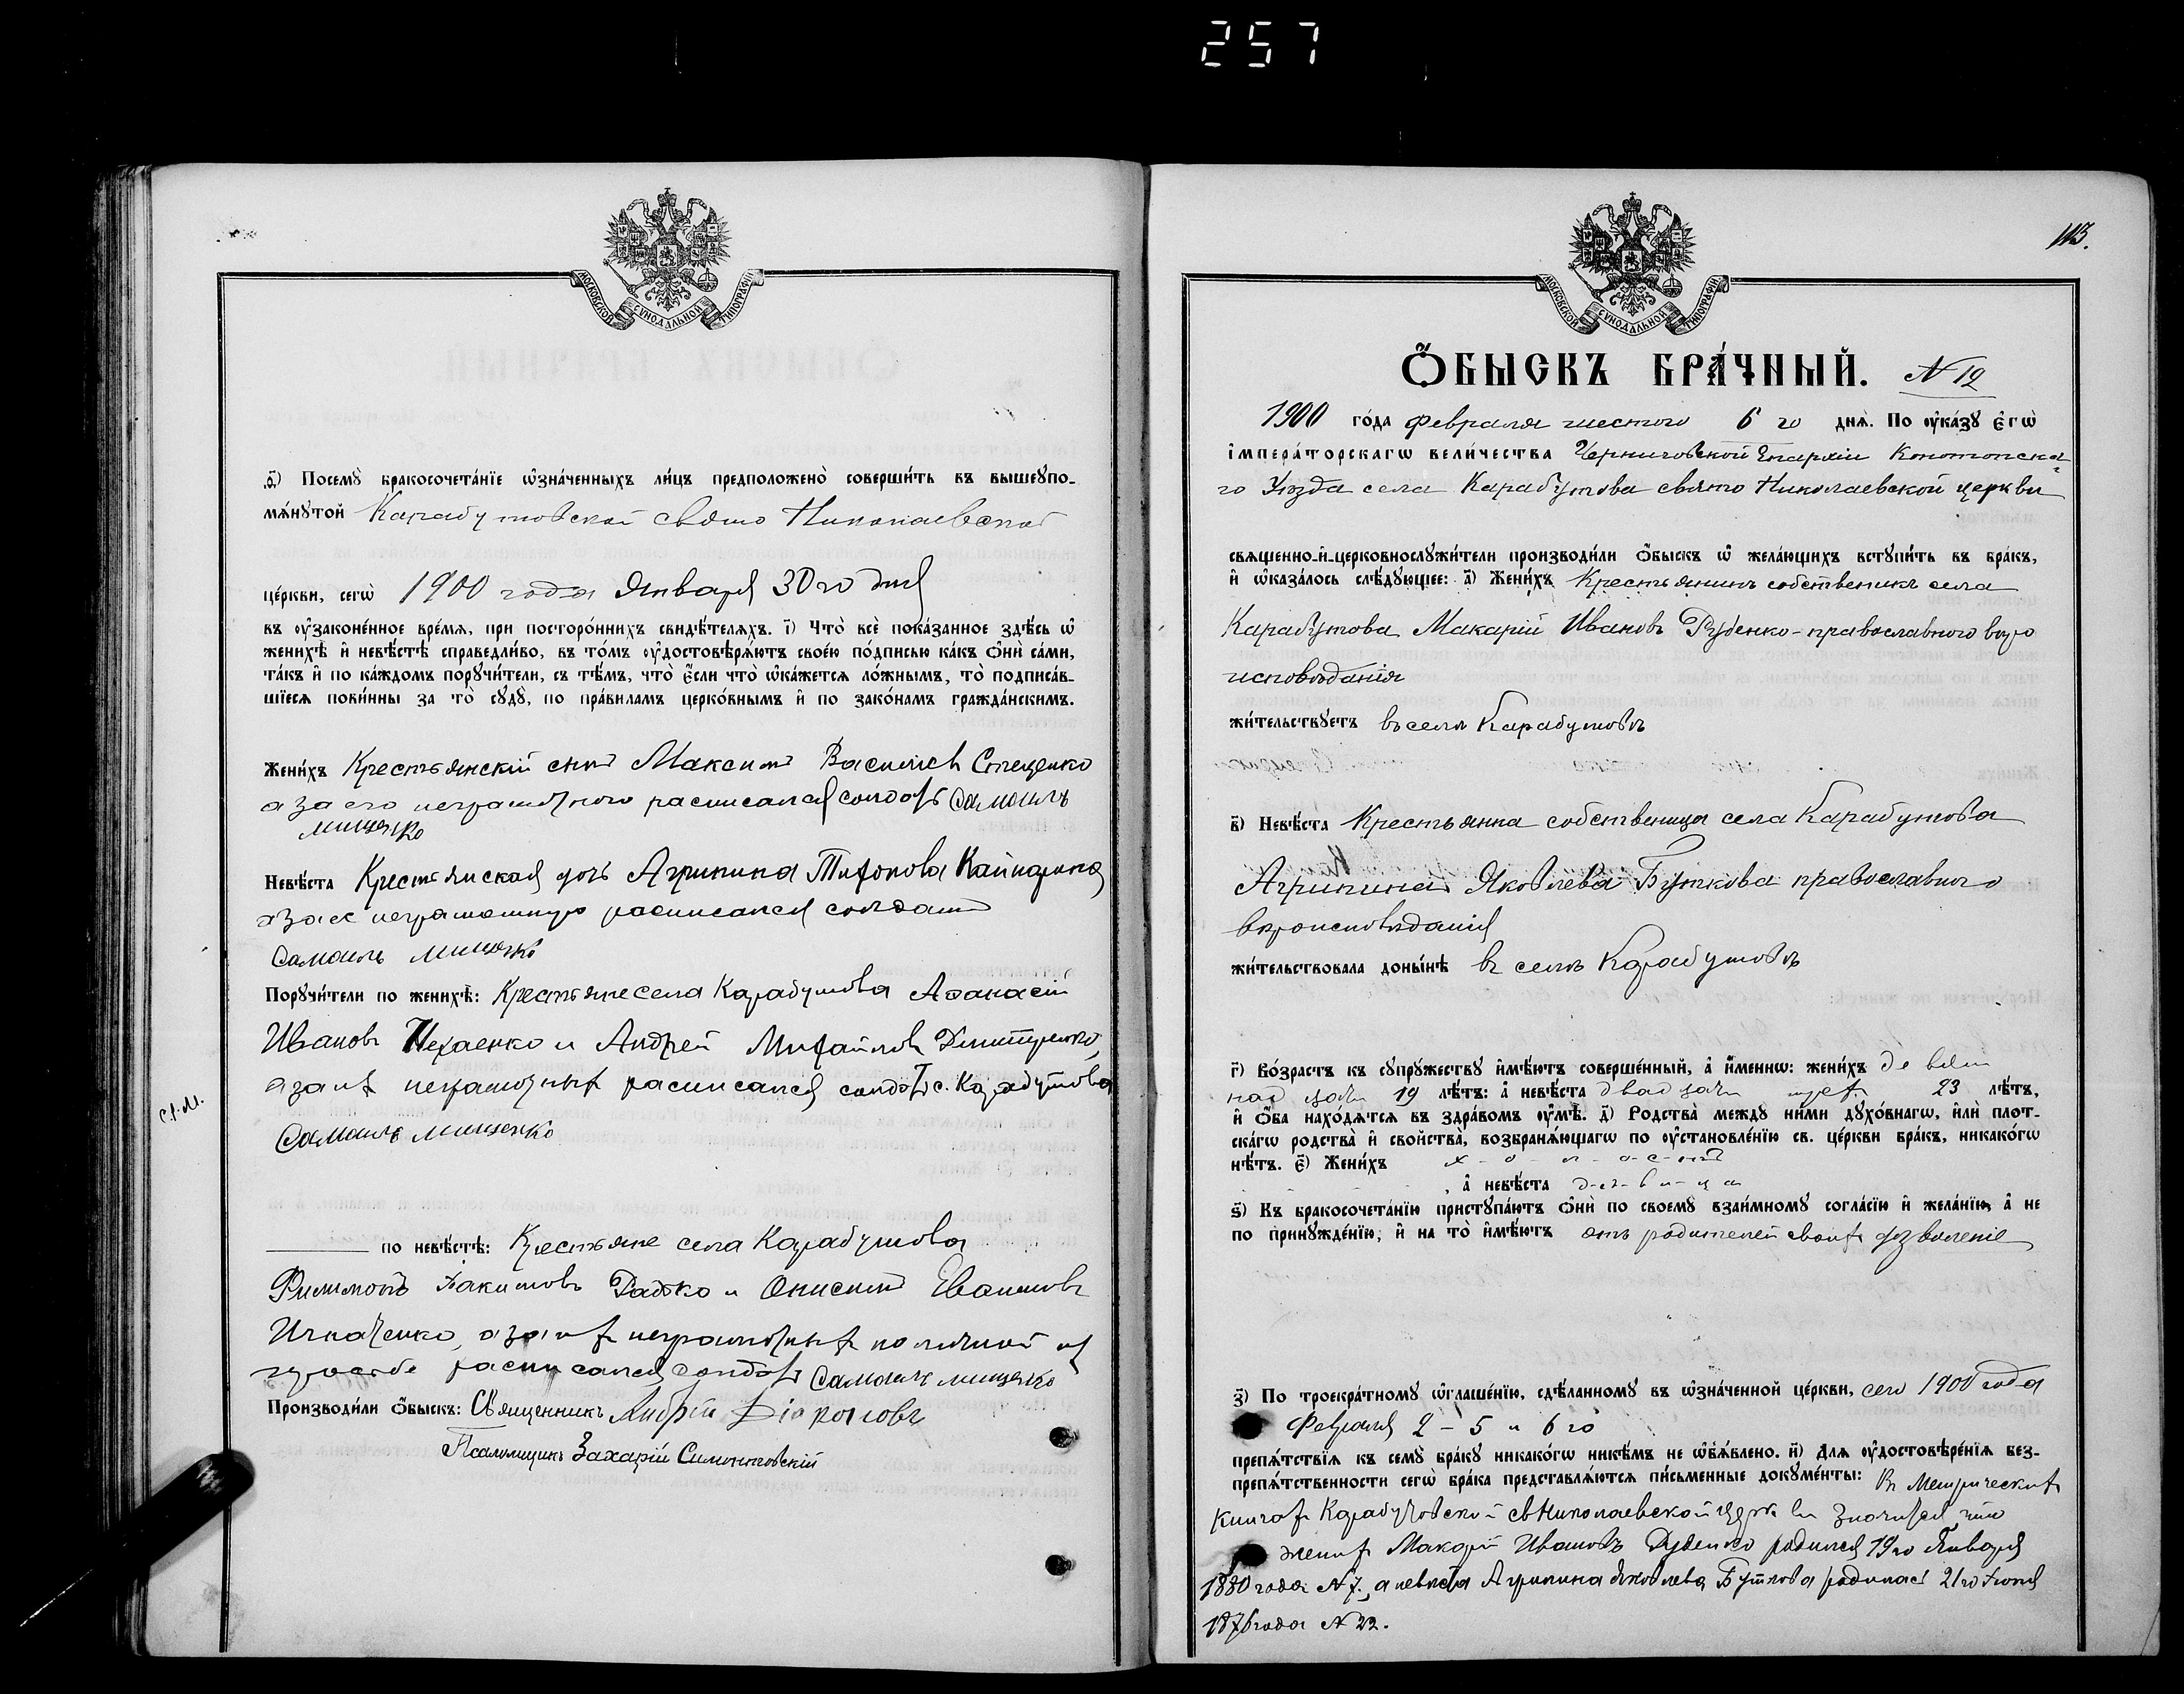 257
МОСКОВСКОЙ СУНОДАЛЬНОЙ ТИПОГРАФІИ
ѳ҃) Посемꙋ̀ бракосочета́нїе ѡ҆зна́ченныхъ ли́цъ предположено̀ соверши́ть въ вышеꙋпо-
мѧ́нꙋтой Карабутовской свято Николаевской
це́ркви, сегѡ̀ 1900 года Января 30го дня
въ ᲂу҆зако́не́нное вре́мѧ, при посторо́ннихъ свидѣ́телѧхъ. і҃) Что̀ всѐ пока́занное здѣ́сь ѡ҆
женихѣ̀ и҆ невѣ́стѣ справедли́во, въ то́мъ ᲂу҆достовѣрѧ́ютъ свое́ю по́дписью ка́къ ѻ҆нѝ са́ми,
та́къ и҆ по ка́ждомъ порꙋчи́тели, съ тѣ́мъ, что̀ є҆́сли что̀ ѡ҆ка́жетсѧ ло́жнымъ, то̀ подписа́в-
шїесѧ пови́нны за то̀ сꙋдꙋ̀, по пра́виламъ церко́внымъ и҆ по зако́намъ гражда́нскимъ.
Жени́хъ Крестьянскій сынъ Максимъ Василіевъ Стеценко
а за его неграмотного расписался солдатъ Самоилъ
Мищенко
Невѣ́ста Крестьянская дочь Агрипина Тихонова
а за ее неграмотную расписался солдатъ
Самоилъ Мищенко
Порꙋчи́тели по женихѣ̀: Крестьяне села Карабутова Афанасій
Ивановъ Нехаенко и Андрей Михайловъ Дмитренко,
а за ихъ неграмотныхъ расписался солдатъ с. Карабутова
Самоилъ Мищенко
С.М.
по невѣ́стѣ: Крестьяне села Карабутова
Филимонъ Радко и Онисимъ
Игнатенко, а за ихъ неграмотныхъ по личной ихъ
просьбе расписался солдатъ Самоилъ Мищенко
Производи́ли ѻ҆́быскъ: Священникъ Андрей
Псаломщикъ Захарій Симонтовскій
113.
МОСКОВСКОЙ СУНОДАЛЬНОЙ ТИПОГРАФІИ
Ѻ҆́БЫСКЪ БРА́ЧНЫЙ. N 12
1900 го́да февраля шестого 6 го днѧ̀. По ᲂу҆ка́зꙋ є҆гѡ̀
і҆мпера́торскагѡ вели́чества Черниговской Епархіи Конотопска-
го Уѣзда села Карабутова свято Николаевской церкви
свѧще́нно-и҆-церковнослꙋжи́тели производи́ли ѻ҆́быскъ ѡ҆ жела́ющихъ встꙋпи́ть въ бра́къ,
и҆ ѡ҆каза́лось слѣ́дꙋющее: а҃) Жени́хъ Крестьянинъ собственикъ села
Карабутова Макарій Ивановъ Руденко - православного вѣро
исповѣданія
жи́тельствꙋетъ въ селѣ Карабутовѣ
в҃) Невѣ́ста Крестьянка собственица села Карабутова
Агрипина Яковлева Буткова православного
вѣроисповѣданія
жи́тельствовала доны́нѣ въ селѣ Карабутовѣ
г҃) Во́зрастъ къ сꙋпрꙋ́жествꙋ и҆мѣ́ютъ соверше́нный, а҆ и҆́меннѡ: жени́хъ девят
надцати 19 лѣ́тъ: а҆ невѣ́ста двадцати трех 23 лѣ́тъ,
и҆ ѻ҆́ба нахо́дѧтсѧ въ здра́вомъ ᲂу҆мѣ̀. д҃) Родства̀ междꙋ̀ ни́ми дꙋхо́внагѡ, и҆лѝ плот-
ска́гѡ родства̀ и҆ свойства̀, возбранѧ́ющагѡ по ᲂу҆становле́нїю св. це́ркви бра́къ, никако́гѡ
нѣ́тъ. є҃) Жени́хъ х-о-л-о-с-тъ
, а҆ невѣ́ста д-ѣ-в-и-ц а
ѕ҃) Къ бракосочета́нїю пристꙋпа́ютъ ѻ҆нѝ по своемꙋ̀ взаи́мномꙋ согла́сїю и҆ жела́нїю, а҆ не
по принꙋжде́нїю, и҆ на то̀ и҆мѣ́ютъ отъ родителей своихъ дозволеніе
з҃) По троекра́тномꙋ ѡ҆глаше́нїю, сдѣ́ланномꙋ въ ѡ҆зна́ченной це́ркви, сего 1900 года
Февраля 2 - 5 и 6 го
препѧ́тствїѧ къ семꙋ̀ бра́кꙋ никако́гѡ никѣ́мъ не ѡ҆б̾ѧ́влено. и҃) Длѧ ᲂу҆достовѣре́нїѧ без-
препѧ́тственности сегѡ̀ бра́ка представлѧ́ютсѧ пи́сьменные докꙋме́нты: Въ Метрическихъ
книгахъ Карабутовской св Николаевской церкви значится, что
женихъ Макарій Ивановъ Руденко родился 19го Января
1880 года N 7., а невѣста Агрипина Яковлева Буткова родилась 21го Іюня
1876 года N 22.